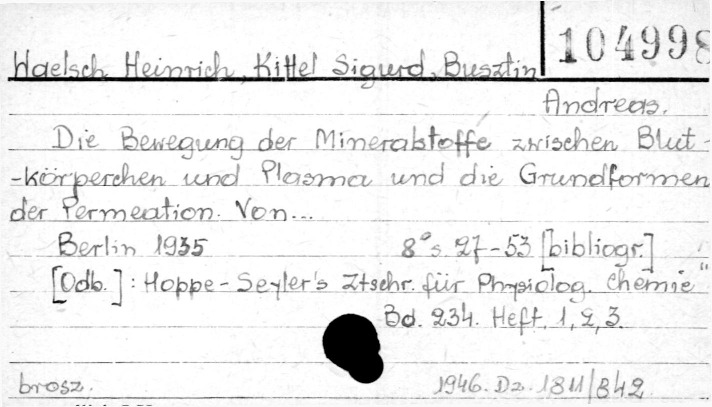 104998
Waelsch Heinrich, Kittel Sigurd, Busztin
Andreas.
Die Bewegung der Mineralstoffe zwischen Blut-
-körperchen und Plasma und die Grundformen
der Permeation. Von...
Berlin 1935 8° s. 27-53 [bibliogr.]
[Odb.]: Hoppe-Seyler's Ztschr. für Physiolog. Chemie"
Bd. 234. Heft. 1, 2, 3.
brosz. 1946. Dz. 1811/842